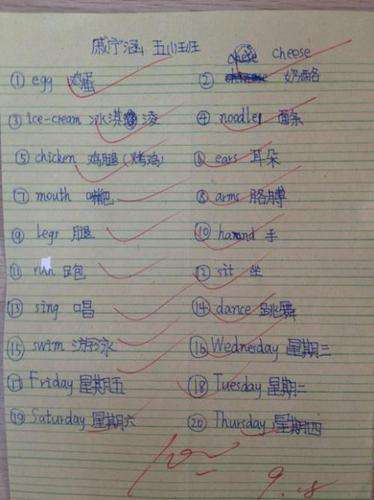 戚宁涵 五班
① egg 鸡蛋 ② cheese 奶酪
③ ice-cream 冰淇凌 ④ noodles 面条
⑤ chicken 鸡腿(烤鸡) ⑥ ears 耳朵
⑦ mouth 嘴巴 ⑧ arms 胳膊
⑨ legs 腿 ⑩ hand 手
⑪ run 跑 ⑫ sit 坐
⑬ sing 唱 ⑭ dance 跳舞
⑮ swim 游泳 ⑯ Wednesday 星期三
⑰ Friday 星期五 ⑱ Tuesday 星期二
⑲ Saturday 星期六 ⑳ Thursday 星期四
9.18